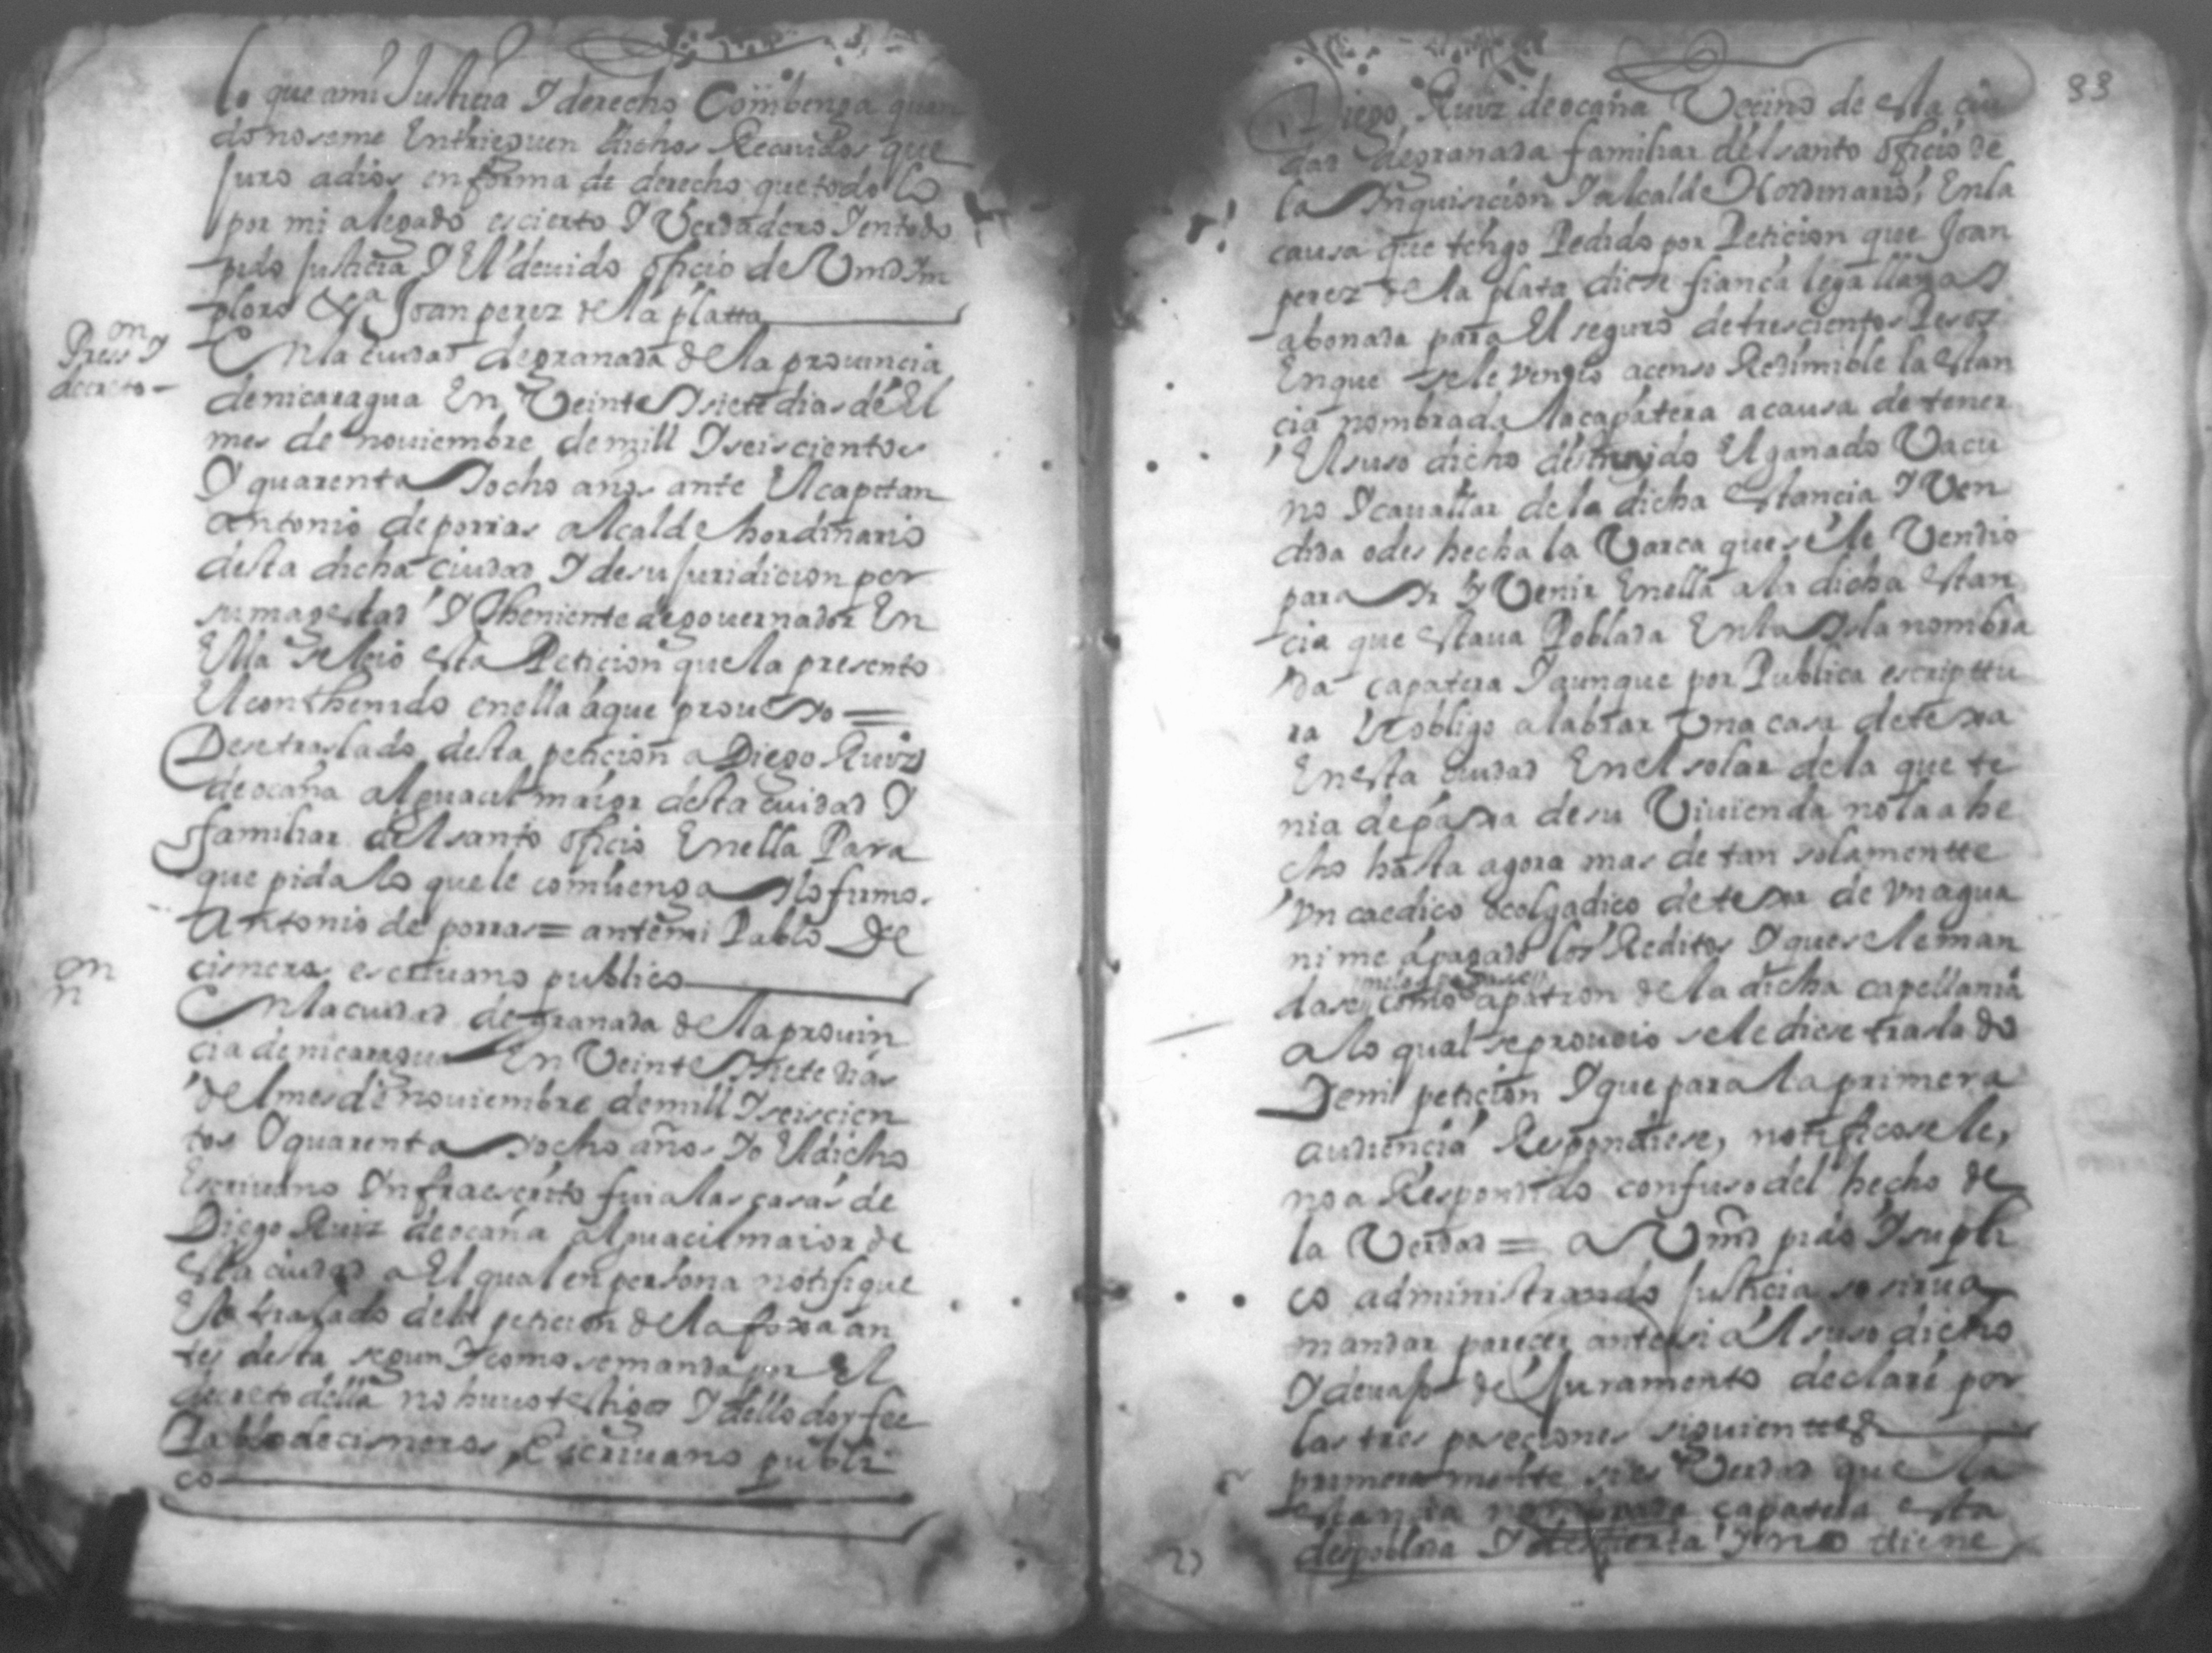 lo que ami Justicia Y derecho Combenga quan
do no seme Entrieguen dichos Recaudos que
Juro adios en forma de derecho que todo lo
por mi alegado es cierto Y Verdadero Y en todo
pido Justicia Y El devido oficio de Vmd Im
ploro &ª Joan perez de la platta
Presson Y
decreto
En la ciudad de granada de la provincia
de nicaragua En Veinte Y siete dias de El
mes de noviembre de mill Y seiscientos
Y quarenta Y ocho años ante El capitan
Antonio de porras alcalde hordinario
desta dicha ciudad Y de su Juridicion por
su magestad Y Theniente de governador En
Ella se leio esta Peticion que la presento
El conthenido en ella a que proveyo =
Dese traslado desta peticion a Diego Ruiz
de ocaña alguacil maior desta ciudad Y
familiar del santo oficio En ella Para
que pida lo que le combenga Y lo firmo.
Antonio de porras = ante mi Pablo De
cisneros escrivano publico
on
n
En la ciudad de granada de la provin
cia de nicaragua En Veinte Y siete dias
del mes de noviembre de mill Y seiscien
tos Y quarenta Y ocho años Yo El dicho
Escrivano Ynfraescrito fui a las casas de
Diego Ruiz de ocaña alguacil maior de
esta ciudad a El qual en persona notifique
El traslado dela peticion de la foxa an
tes desta segun Y como se manda por El
decreto della no huvo testigos Y dello doy fee
Pablo de cisneros Escrivano publi
co
83
Diego Ruiz de ocaña Vecino de esta ciu
dad de granada familiar del santo oficio de
la Ynquisicion Y alcalde Hordinario, En la
causa que tengo Pedido por Peticion que Joan
perez de la plata diese fiança lega llana Y
abonada para El seguro de trescientos Pesos
En que se le vendio a censo Redimible la estan
cia nombrada la capatera a causa de tener
El suso dicho destruydo El ganado Vacu
no Y cavallar de la dicha estancia Y Ven
dida o des hecha la Varca que se le Vendio
para Yr Y Venir En ella a la dicha estan
cia que estava Poblada En la Ysla nombra
da çapatera Y aunque por Publica escripttu
ra se obligo a labrar Una casa de texa
En esta ciudad En el solar de la que te
nia de paxa de su Vivienda no la a he
cho hasta agora mas de tan solamentte
Vn caedico o colgadico de texa de Vn agua
ni me a pagado los Reditos Y que se le man
dase como a patron de la dicha capellania
a lo qual se proveio se le diese traslado
De mi peticion Y que para la primera
audiencia Respondiese, notificosele,
no a Respondido confuso del hecho de
la Verdad = a Vmd pido Y supli
co administrando Justicia se sirva
mandar parecer ante si a El suso dicho
Y devaxo de Juramento declare por
las tres poseciones siguienttes
primeramente si es Verdad que la
estancia nombrada çapatera esta
despoblada Y desierta Y no tiene